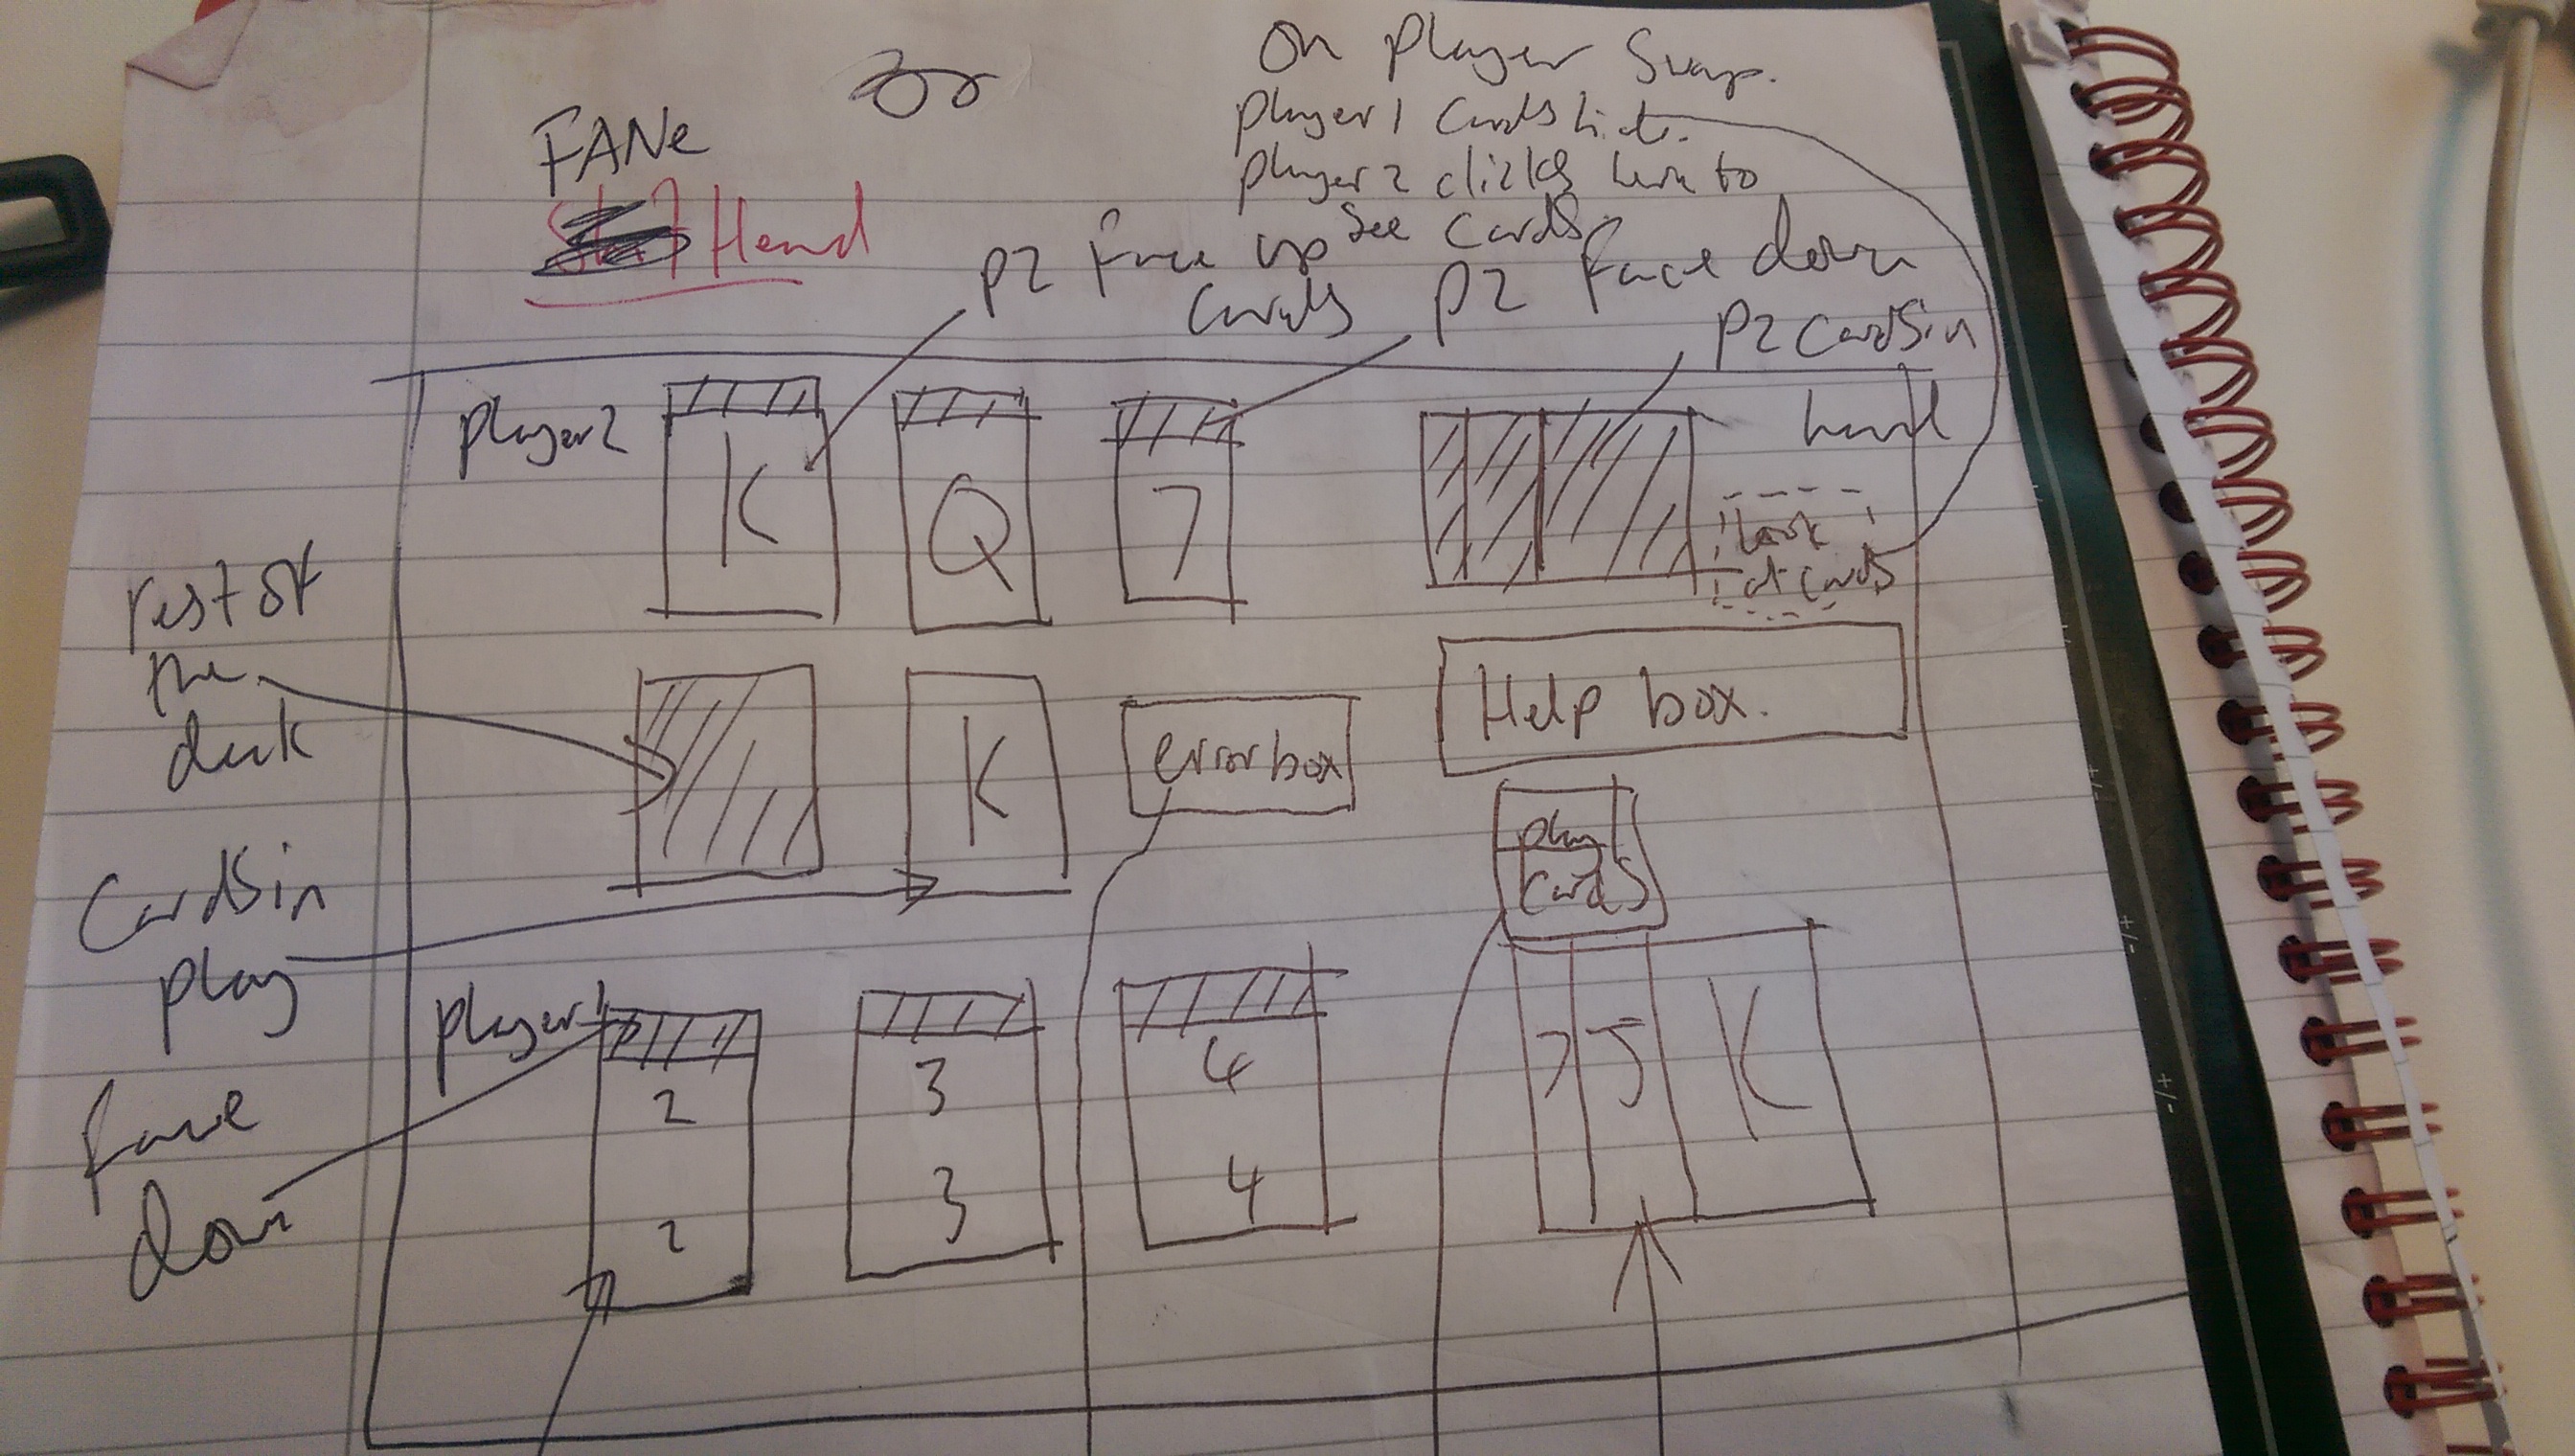 On Player Swap.
player 1 Cards hide.
player 2 clicks here to
See Cards
FANe
Head
P2 Face up
Cards
P2 Face down
P2 Cards in
hand
player 2
K
Q
7
look
at cards
rest of
the
deck
K
error box
Help box.
play
cards
Cards in
play
player 1
2
2
3
3
4
4
7
J
K
face
down